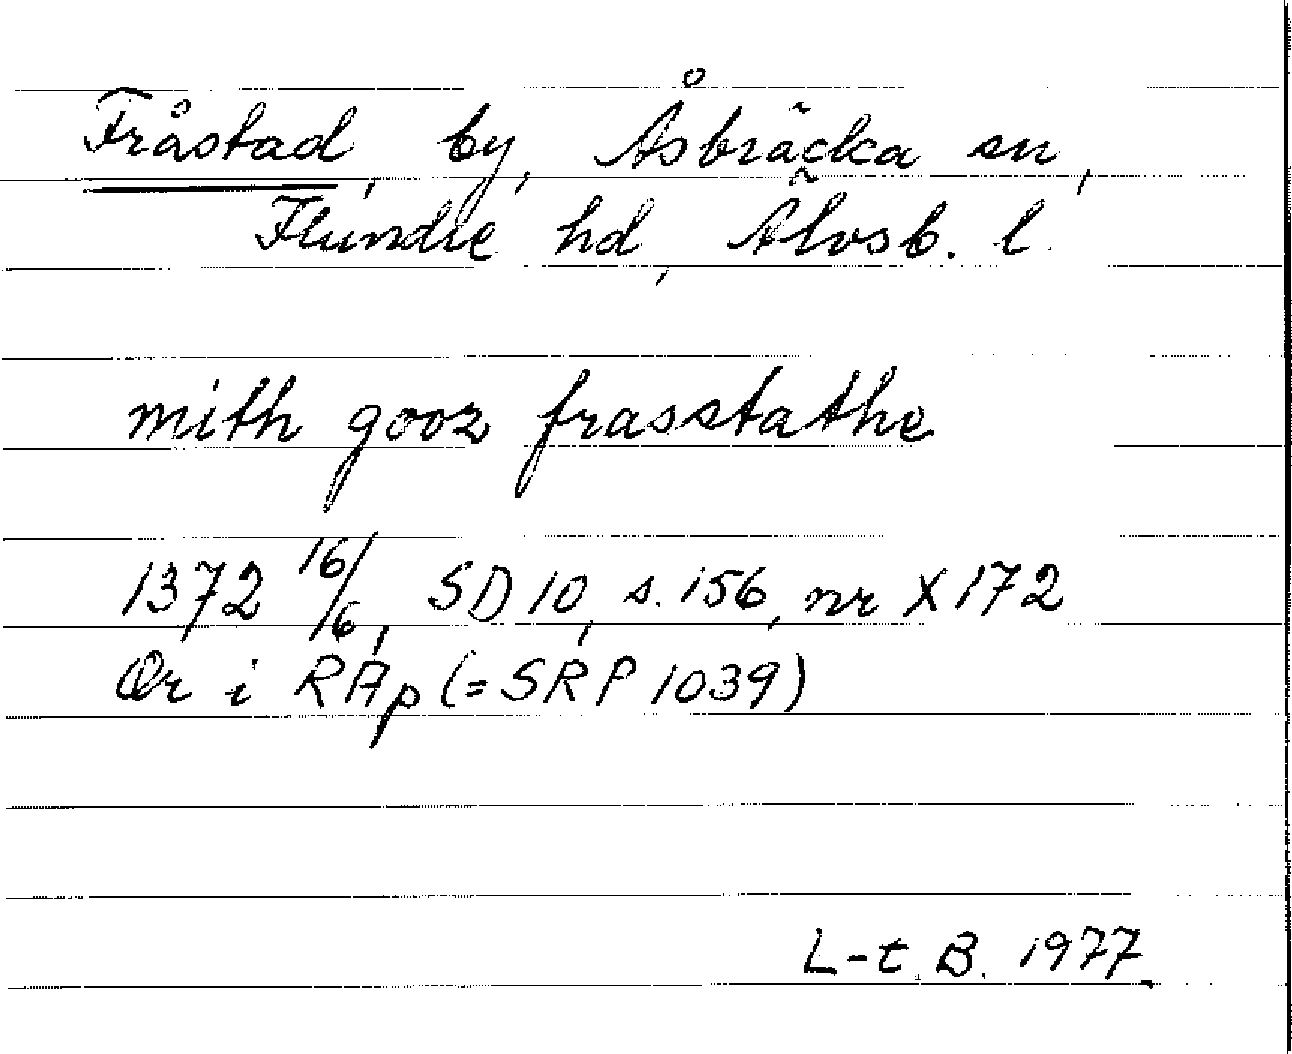 Fråstad, by, Åsbräcka sn,
Flundre hd, Älvsb. l.
mith gooz frasstathe
1372 16/6, SD 10, s. 156, nr X 172
Or i RAp (= SRP 1039)
L-t B. 1977.